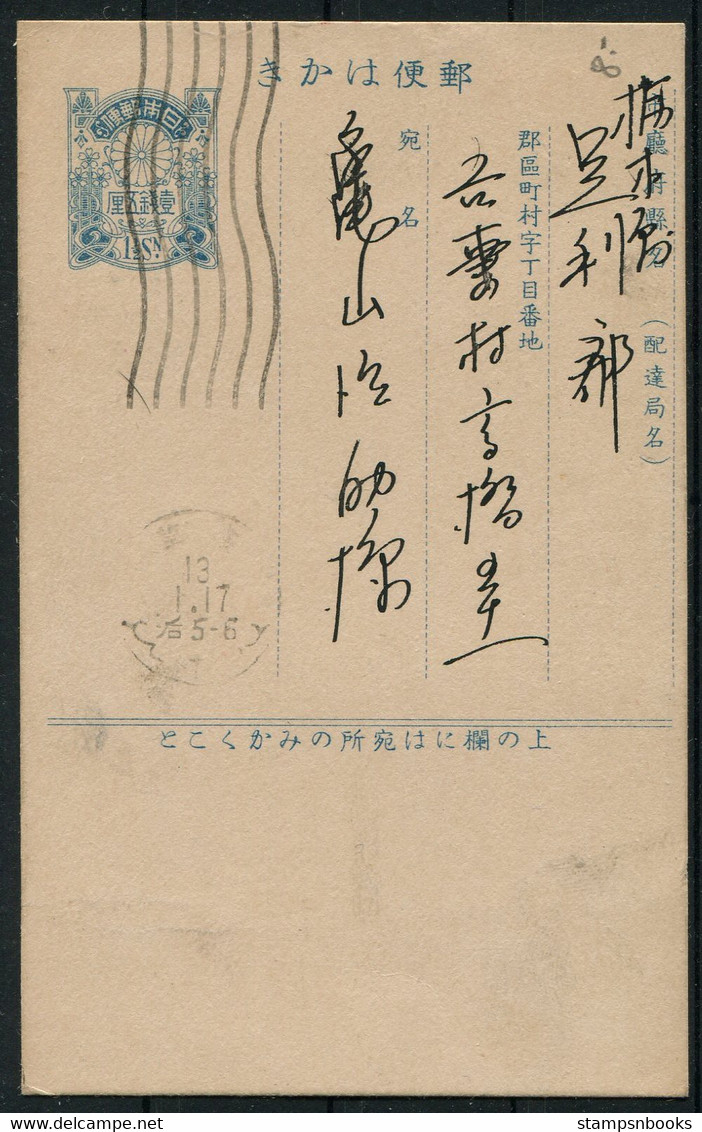 郵便はかき
日本郵便
壹錢五厘
1½SN.
廳府縣名
(配達局名)
栃木縣
足利郡
郡區町村字丁目番地
吾妻村高橋
宛名
亀山
助様
13
1.17
后5-6
上の欄には宛所のみかくこと
stampsnbooks